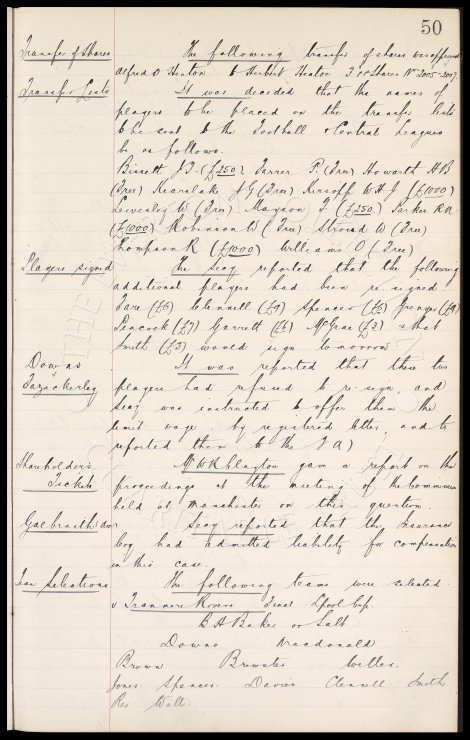 50
Transfer of Shares The following transfer of shares was approved
Alfred D Heaton to Herbert Heaton 3 Shares No 2005-2007.
Transfer Lists It was decided that the names of
players to be placed on the transfer lists
to be sent to the Football & Central Leagues
be as follows.
Bissett J.T. (£250) Farrer P. (Free) Howarth H B
(Free) Kearslake J G (Free) W H J (£1000)
Leversley W (Free) Mayson T (£250) Parker R.N.
(£1000) Robinson W (Free) Stroud W (Free)
Thompson R (£1000) Williams O (Free)
Players signed The Secy reported that the following
additional players had been re-signed
Fare (£6) Clennell (£9) Spencer (£6) Grenyer (£9)
Peacock (£7) Garrett (£6) McGrae (£3) & that
Smith (£3) would sign tomorrow
Downs & It was reported that these two
Fazackerley players had refused to re-sign, and
Secy was instructed to offer them the
limit wage by registered letter, and to
reported them to the F A)
Shareholders Mr W R Clayton gave a report on the
Tickets proceedings at the meeting of the Commission
held at Manchester on this question.
Galbraith Secy reported that the Insurance
Coy had admitted liability for compensation
in this case.
Team Selections The following teams were selected.
v Tranmere Rovers Final Lpool Cup.
B A Baker or Salt
Downs Macdonald
Brown Brewster Weller.
Jones Spencer Davies Clennell Smith
Res Wall.